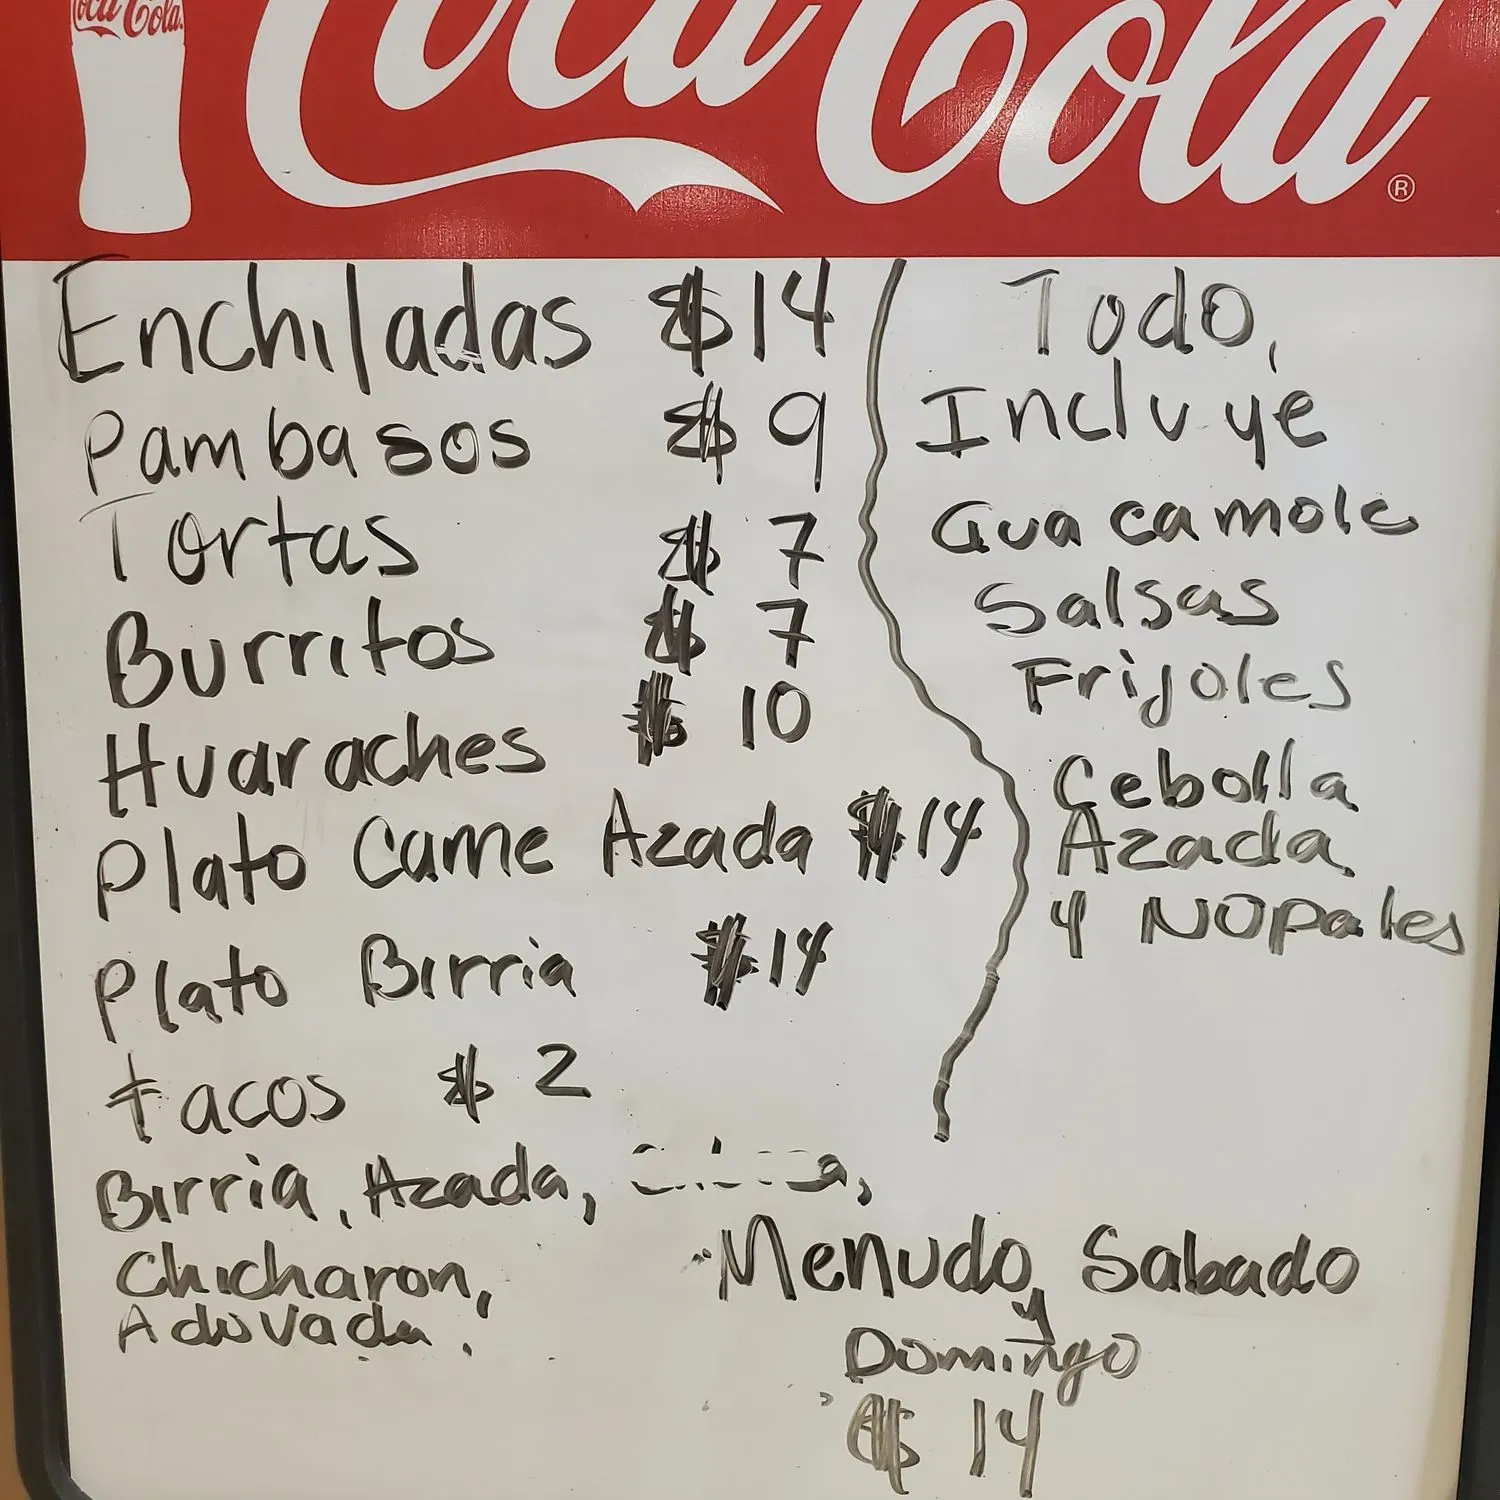 Coca-Cola
Coca-Cola®
Enchiladas $14
Pambasos $9
Tortas $7
Burritos $7
Huaraches $10
Plato Carne Azada $14
Plato Birria $14
tacos $2
Birria, Azada,
Chicharon,
Adovada.
Todo,
Incluye
Guacamole
Salsas
Frijoles
Cebolla
Azada
y Nopales
Menudo Sabado
y
Domingo
$14